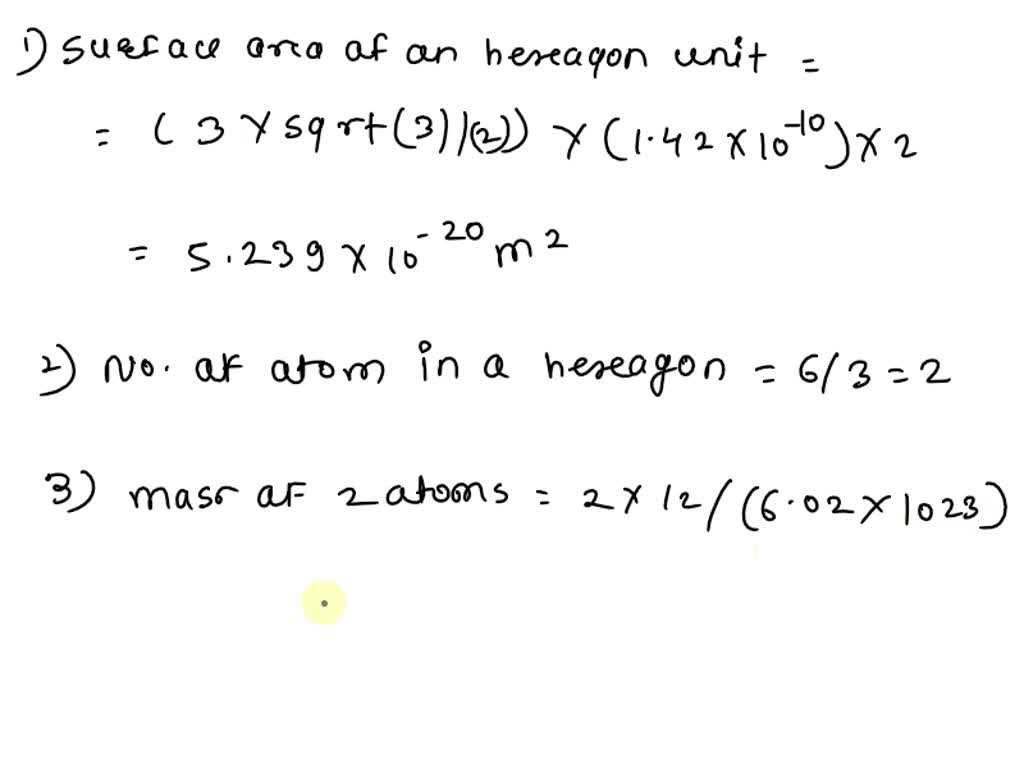 1) surface area af an hexagon unit =
= (3 × sqrt(3)/(2)) × (1.42 × 10⁻¹⁰) × 2
= 5.239 × 10⁻²⁰ m²
2) No. af atom in a hexagon = 6/3 = 2
3) mass af 2 atoms = 2 × 12 / (6.02 × 1023)